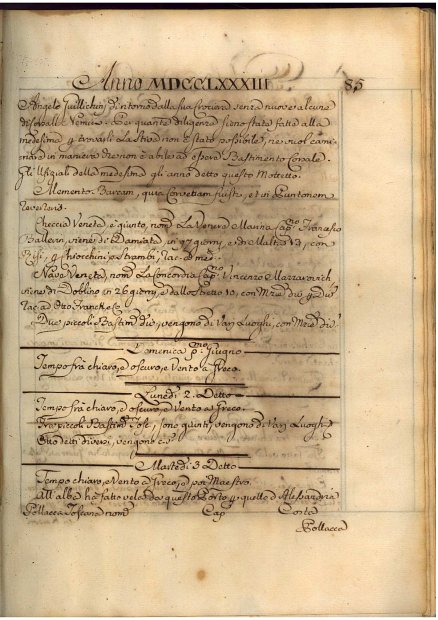 Anno MDCCLXXXIII 85
Angelo Guillichini di ritorno dalla sua crociera senza nuove alcune
di Per quante diligenze sieno state fatte alla
medesima p trovarli La Stiva non è stato possibile, ne vuol cami-
nare in maniera che non è abile ad essere Bastimento Corsale.
Gli Ufiziali della medesima gli anno detto questo Mottetto.
Memento Barcam, quia Corvettam fuisti, et in Puntonem
reverteris.
Checcia Veneta, è giunto, nom La Venera Marina Cap.º Francesco
Ballerin, viene di Damiata in 47 giorni, e di Malta 13, con
Risi, q Chiocchini e Strambi, rac. ad me.
Nave Veneta, nom La Concordia Cap.º Vincenzo Marzarovich
viene di Dublino in 26 giorni, e dallo Stretto 10, con Merc div p div
rac. ad Otto Franck e C.
Due piccoli Bastim div, vengono di Varj Luoghi, con Merc div
Domenica p.mo Giugno
Tempo frà chiaro, e oscuro, e Vento a Greco.
Lunedì 2. Detto
Tempo frà chiaro, e oscuro, e Vento a Greco.
Tre piccoli Bastim Tosc, sono giunti, vengono di Varj Luoghi
Otto detti diversi, vengono
Martedì 3 Detto
Tempo chiaro, e Vento a Greco, e poi Maestro.
All'alba hà fatto vela da questo Porto p quello d'Alessandria
Pollacca Toscana nom Cap Costa
Pollacca